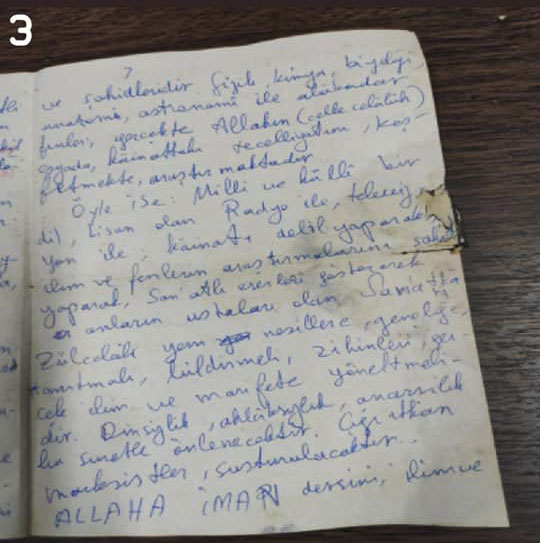 3
7
ve şahidleridir. Fizik, kimya, biyoloji,
anatomi, astronomi ile alâkadar
fenler, gerçekte Allahın (celle celâlüh)
eşyada, kâinattaki tecelliyatını, keş-
fetmekte, araştırmaktadır.
Öyle ise: Milli ve külli bir
dil, lisan olan Radyo ile, televiz-
yon ile, kâinatı delil yaparak,
ilim ve fenlerin araştırmalarını şahit
yaparak, San'atlı eserleri göstererek
onların ustaları olan Sanatkâ
Zülcelâli yeni nesillere, gençliğe,
tanıtmalı, bildirmeli, zihinleri, ger-
çek ilim ve marifete yöneltmeli-
dir. Dinsizlik, ahlâksızlık, anarşilik
bu suretle önlenecektir. Çığırtkan
marksistler, susturulacaktır..
ALLAHA İMAN dersini, ilim ve